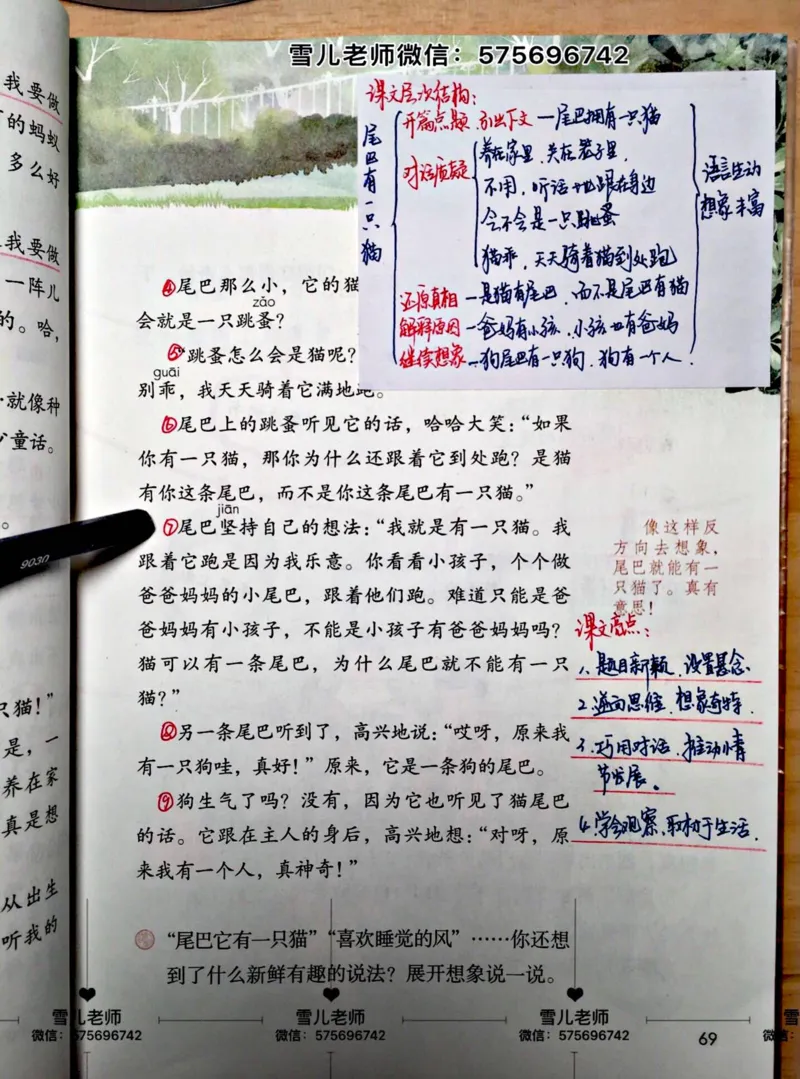 雪儿老师微信：575696742
我要做
的蚂蚁
多么好
我要做
一阵儿
的。哈，
就像种
童话。
。
只猫！”
是，一
养在家
真是想
从出生
听我的
课文层次结构：
尾巴有一只猫
开篇点题 引出下文—尾巴拥有一只猫
对话质疑
养在家里，关在笼子里，
不用，听话地跟在身边
会不会是一只跳蚤
猫乖，天天骑着猫到处跑
还原真相—是猫有尾巴，而不是尾巴有猫
解释原因—爸妈有小孩，小孩也有爸妈
继续想象—狗尾巴有一只狗，狗有一个人．
语言生动
想象丰富
④尾巴那么小，它的猫
zǎo
会就是一只跳蚤？
⑤跳蚤怎么会是猫呢？
guāi
别乖，我天天骑着它满地跑。
⑥尾巴上的跳蚤听见它的话，哈哈大笑：“如果
你有一只猫，那你为什么还跟着它到处跑？是猫
有你这条尾巴，而不是你这条尾巴有一只猫。”
jiān
⑦尾巴坚持自己的想法：“我就是有一只猫。我
跟着它跑是因为我乐意。你看看小孩子，个个做
爸爸妈妈的小尾巴，跟着他们跑。难道只能是爸
爸妈妈有小孩子，不能是小孩子有爸爸妈妈吗？
猫可以有一条尾巴，为什么尾巴就不能有一只
猫？”
⑧另一条尾巴听到了，高兴地说：“哎呀，原来我
有一只狗哇，真好！”原来，它是一条狗的尾巴。
⑨狗生气了吗？没有，因为它也听见了猫尾巴
的话。它跟在主人的身后，高兴地想：“对呀，原
来我有一个人，真神奇！”
9030
像这样反
方向去想象，
尾巴就能有一
只猫了。真有
意思！
课文亮点：
1、题目新颖，设置悬念．
2、逆向思维，想象奇特．
3、巧用对话，推动情
节发展。
4、学会观察，取材于生活．
“尾巴它有一只猫”“喜欢睡觉的风”……你还想
到了什么新鲜有趣的说法？展开想象说一说。
雪儿老师
微信：575696742
雪儿老师
微信：575696742
雪儿老师
微信：575696742
69